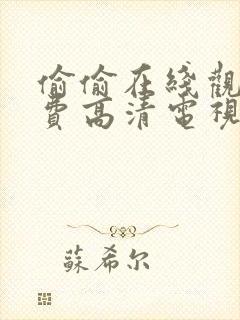 偷偷在綫觀
費高清電視
蘇希尔